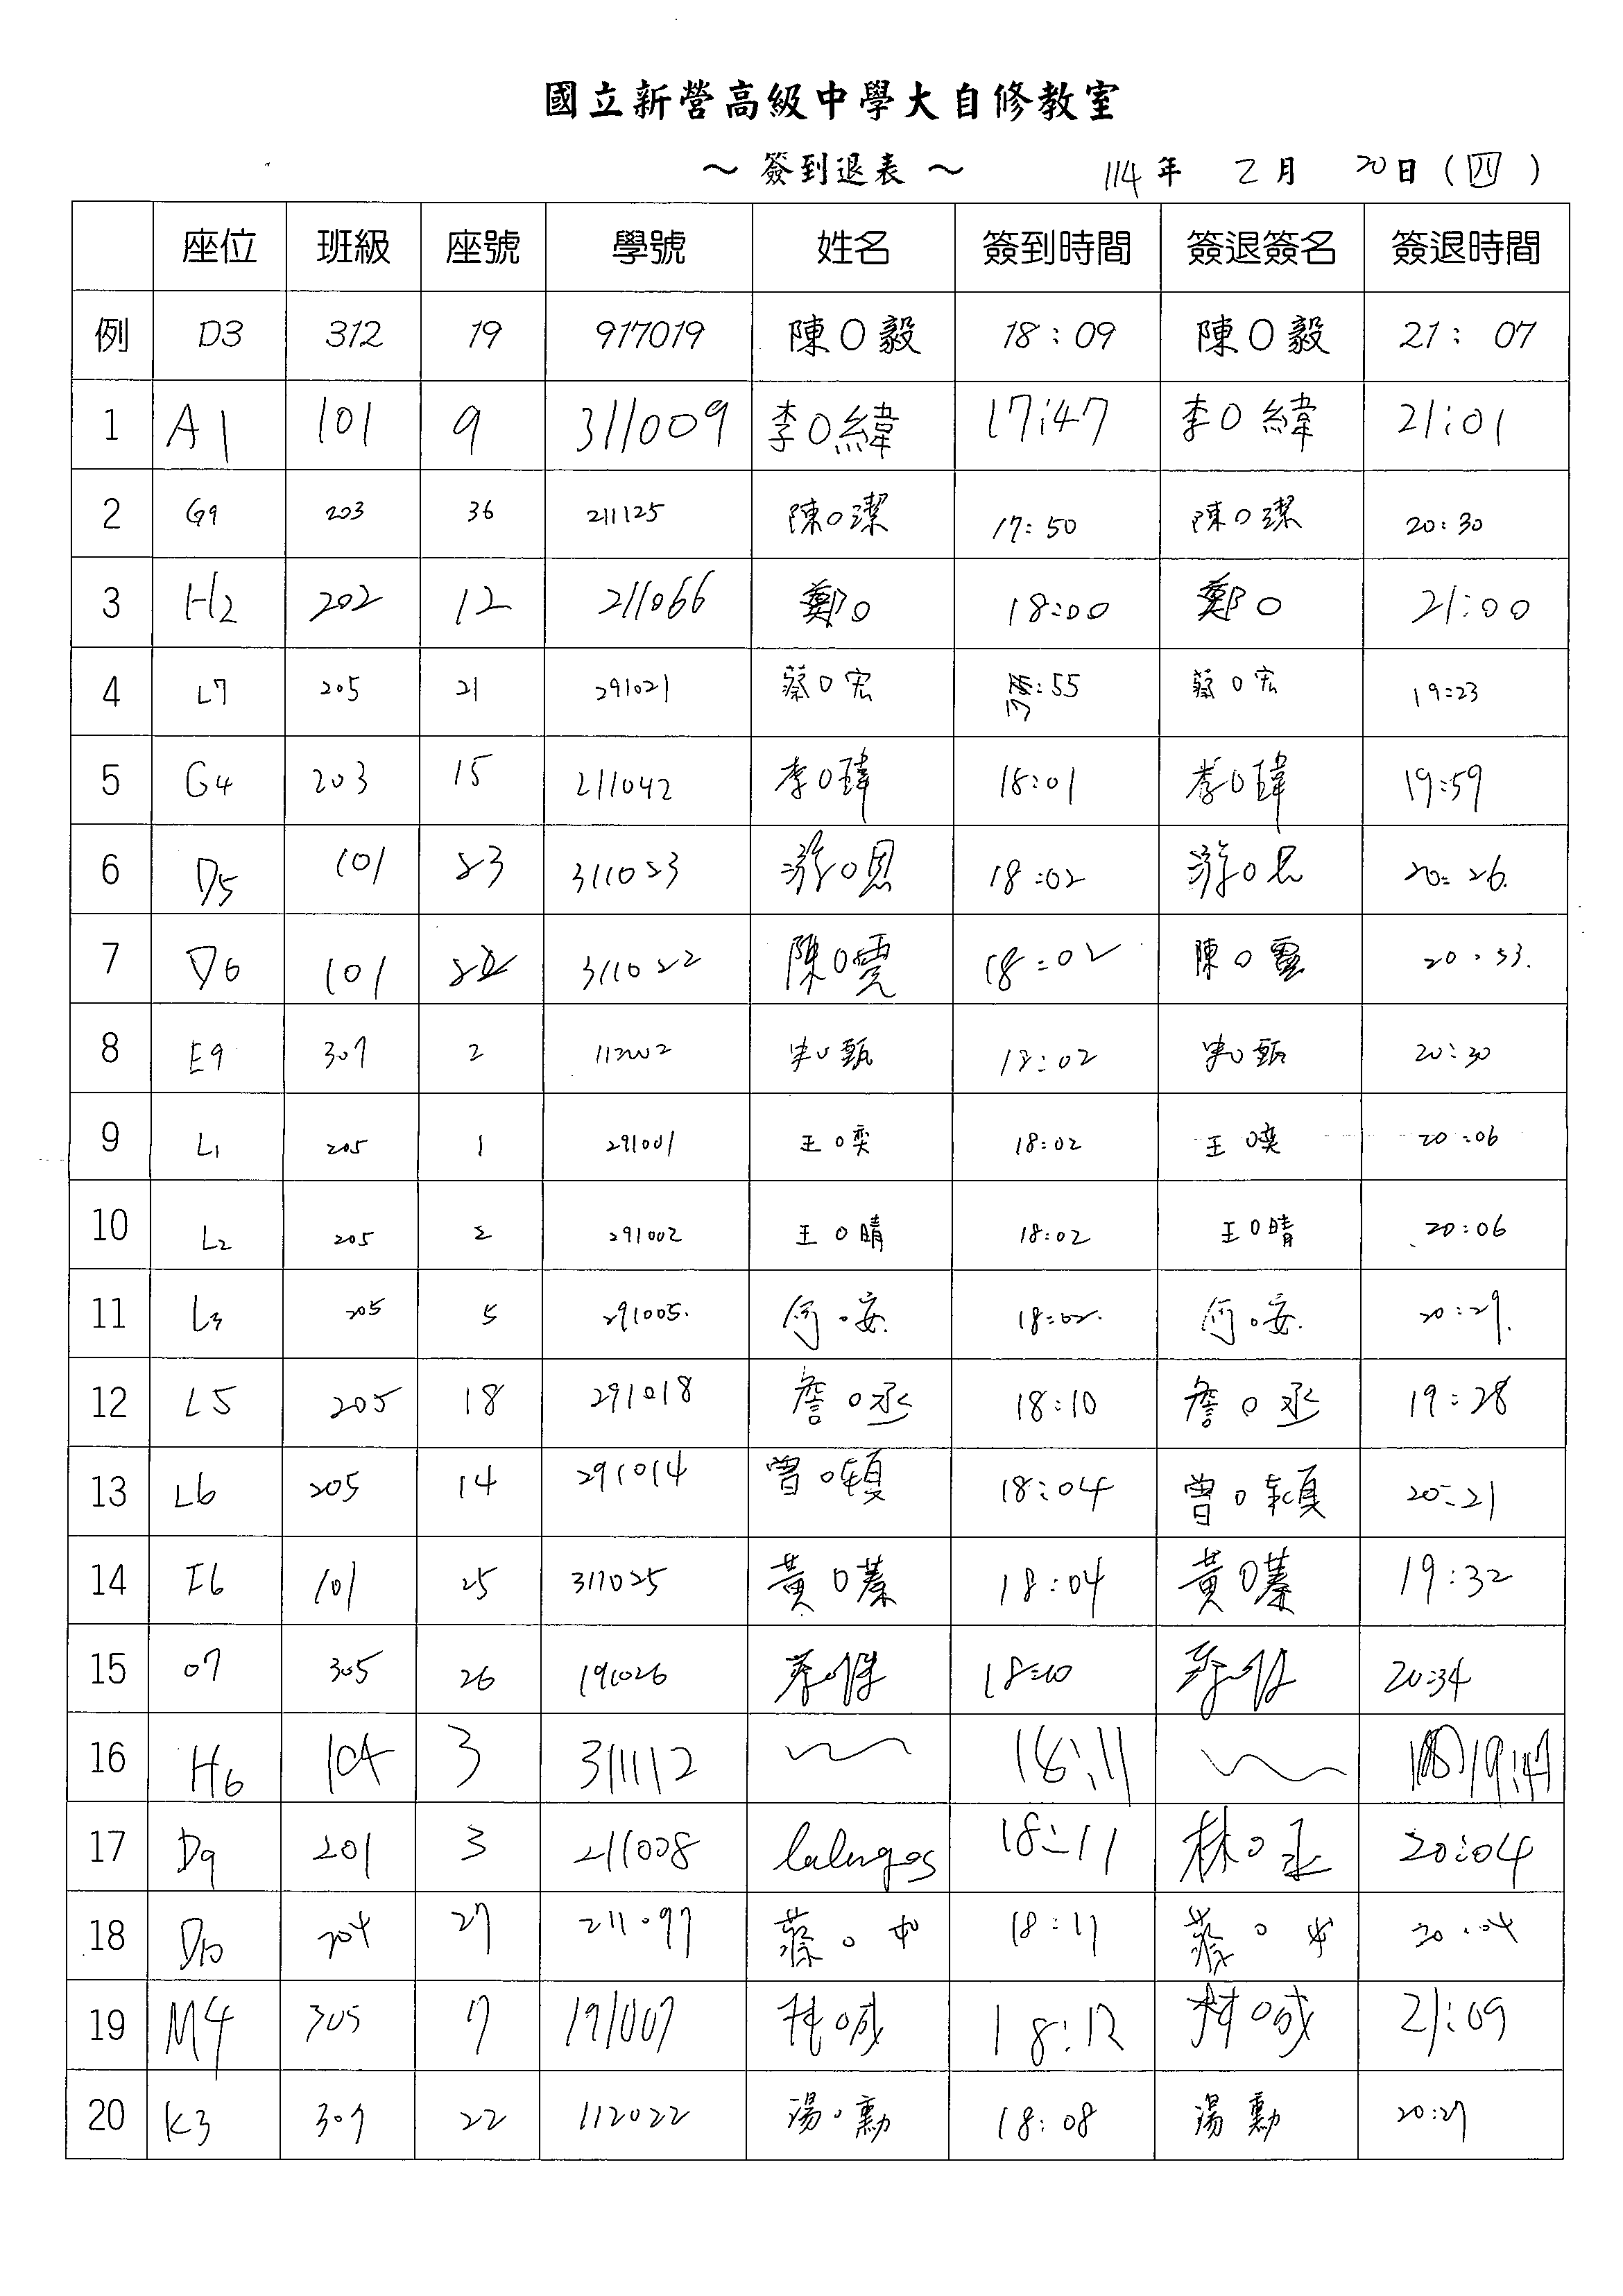 國立新營高級中學大自修教室
～ 簽到退表 ～ 114 年 2 月 20 日 ( 四 )
座位 班級 座號 學號 姓名 簽到時間 簽退簽名 簽退時間
例 D3 312 19 917019 陳O毅 18:09 陳O毅 21:07
1 A1 101 9 311009 李O緯 17:47 李O緯 21:01
2 G9 203 36 211125 陳O潔 17:50 陳O潔 20:30
3 H2 202 12 211066 鄭O 18:00 鄭O 21:00
4 L7 205 21 291021 蔡O宏 17:55 蔡O宏 19:23
5 G4 203 15 211042 李O瑋 18:01 李O瑋 19:59
6 D5 101 23 311023 游O恩 18:02 游O恩 20:26
7 D6 101 22 311022 陳O霓 18:02 陳O 20:53
8 E9 307 2 112002 O甄 18:02 O甄 20:30
9 L1 205 1 291001 王O奕 18:02 王O奕 20:06
10 L2 205 2 291002 王O晴 18:02 王O晴 20:06
11 L3 205 5 291005 何O安 18:02 何O安 20:29
12 L5 205 18 291018 詹O丞 18:10 詹O丞 19:28
13 L6 205 14 291014 曾O 18:04 曾O 20:21
14 I6 101 25 311025 黃O蓁 18:04 黃O蓁 19:32
15 O7 305 26 191026 18:10 20:34
16 H6 104 3 311112 18:11 19:47
17 D9 201 3 211008 18:11 林O丞 20:04
18 D10 204 27 211097 蔡O 18:11 蔡O 20:04
19 M4 305 7 191007 林O成 18:12 林O成 21:09
20 K3 307 22 112022 湯O勳 18:08 湯 勳 20:27